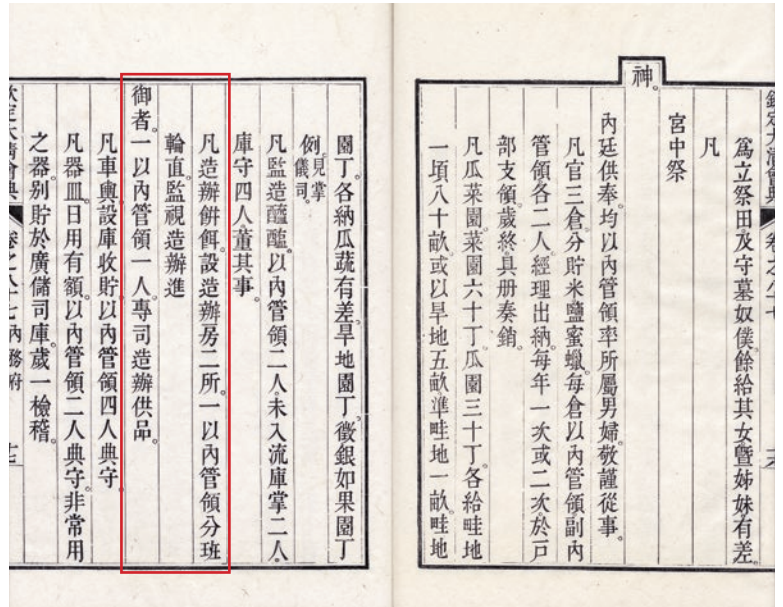 欽定大清會典 卷之八十七
爲立祭田及守墓奴僕餘給其女曁姊妹有差。
凡
宮中祭
神。
內廷供奉。均以內管領率所屬男婦。敬謹從事。
凡官三倉。分貯米鹽蜜蠟。每倉以內管領副內
管領各二人。經理出納。每年一次或二次於戸
部支領。歲終具册奏銷。
凡瓜菜園。菜園六十丁。瓜園三十丁。各給畦地
一頃八十畝。或以旱地五畝準畦地一畝。畦地
園丁。各納瓜蔬有差。旱地園丁。徵銀如果園丁
例。見掌儀司。
凡監造醯醢。以內管領二人。未入流庫掌二人。
庫守四人董其事。
凡造辦餅餌。設造辦房二所。一以內管領分班
輪直。監視造辦進
御者。一以內管領一人。專司造辦供品。
凡車輿設庫收貯以內管領四人典守
凡器皿。日用有額。以內管領二人典守。非常用
之器。别貯於廣儲司庫。歲一檢稽。
欽定大清會典 卷之八十七 內務府 七